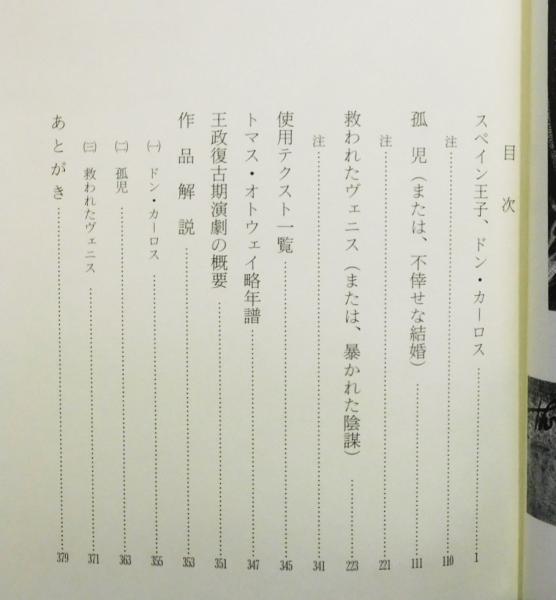 目次
スペイン王子、ドン・カーロス……1
注……110
孤児（または、不倖せな結婚）……111
注……221
救われたヴェニス（または、暴かれた陰謀）……223
注……341
使用テクスト一覧……345
トマス・オトウェイ略年譜……347
王政復古期演劇の概要……351
作品解説……353
㈠ ドン・カーロス……355
㈡ 孤児……363
㈢ 救われたヴェニス……371
あとがき……379